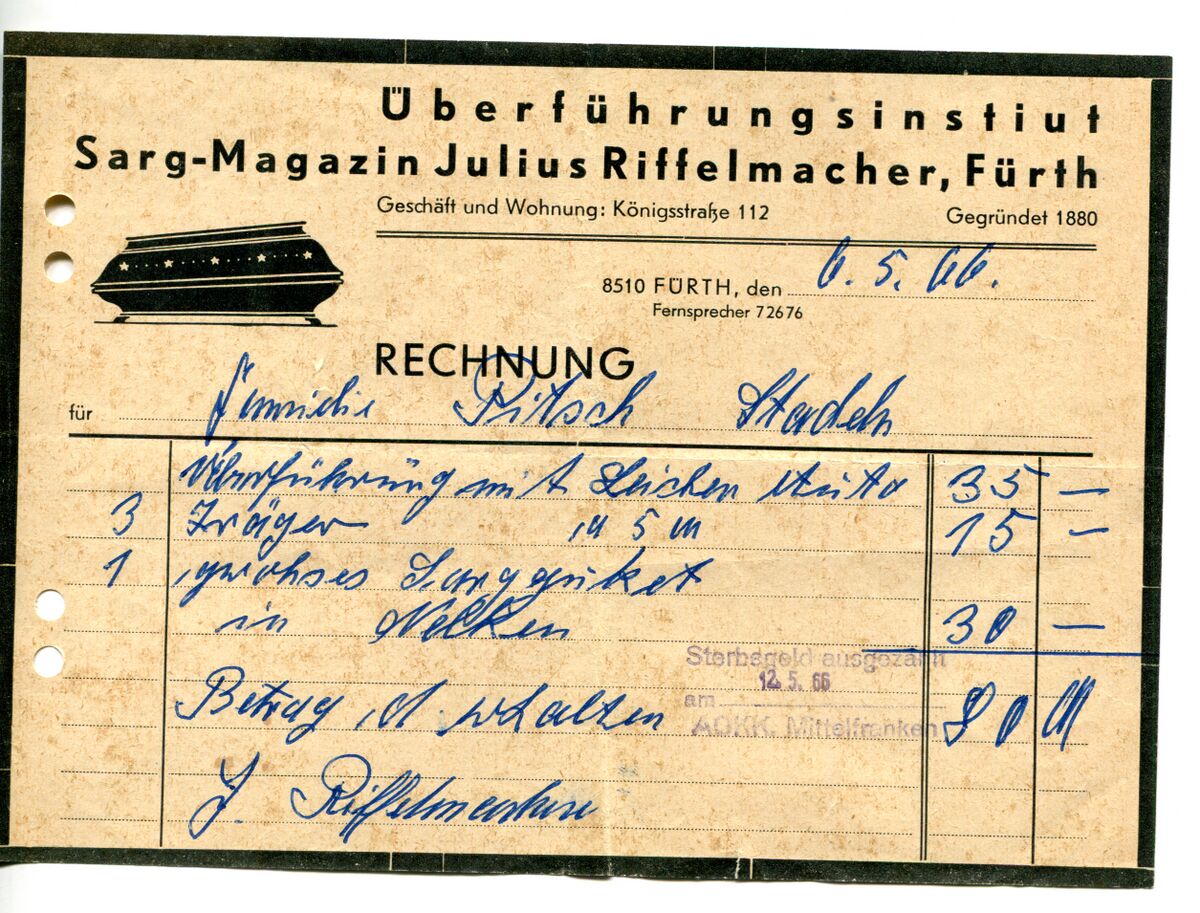 Überführungsinstiut
Sarg-Magazin Julius Riffelmacher, Fürth
Geschäft und Wohnung: Königsstraße 112 Gegründet 1880
8510 FÜRTH, den 6. 5. 66.
Fernsprecher 72676
RECHNUNG
für Familie Pitsch Stadeln
Überführung mit Leichen Auto 35 —
3 Träger a 5 M 15 —
1 Sargbuket
in Nelken 30 —
Sterbegeld ausgezahlt
12. 5. 66
am
AOKK. Mittelfranken
Betrag d. erhalten 80 M
J. Riffelmacher